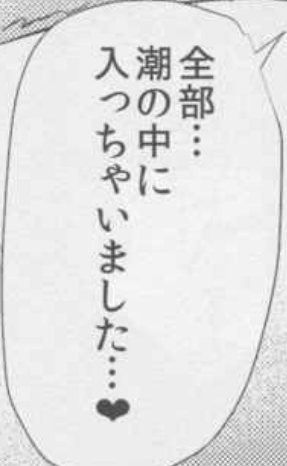 全部…
潮の中に
入っちゃいました…❤